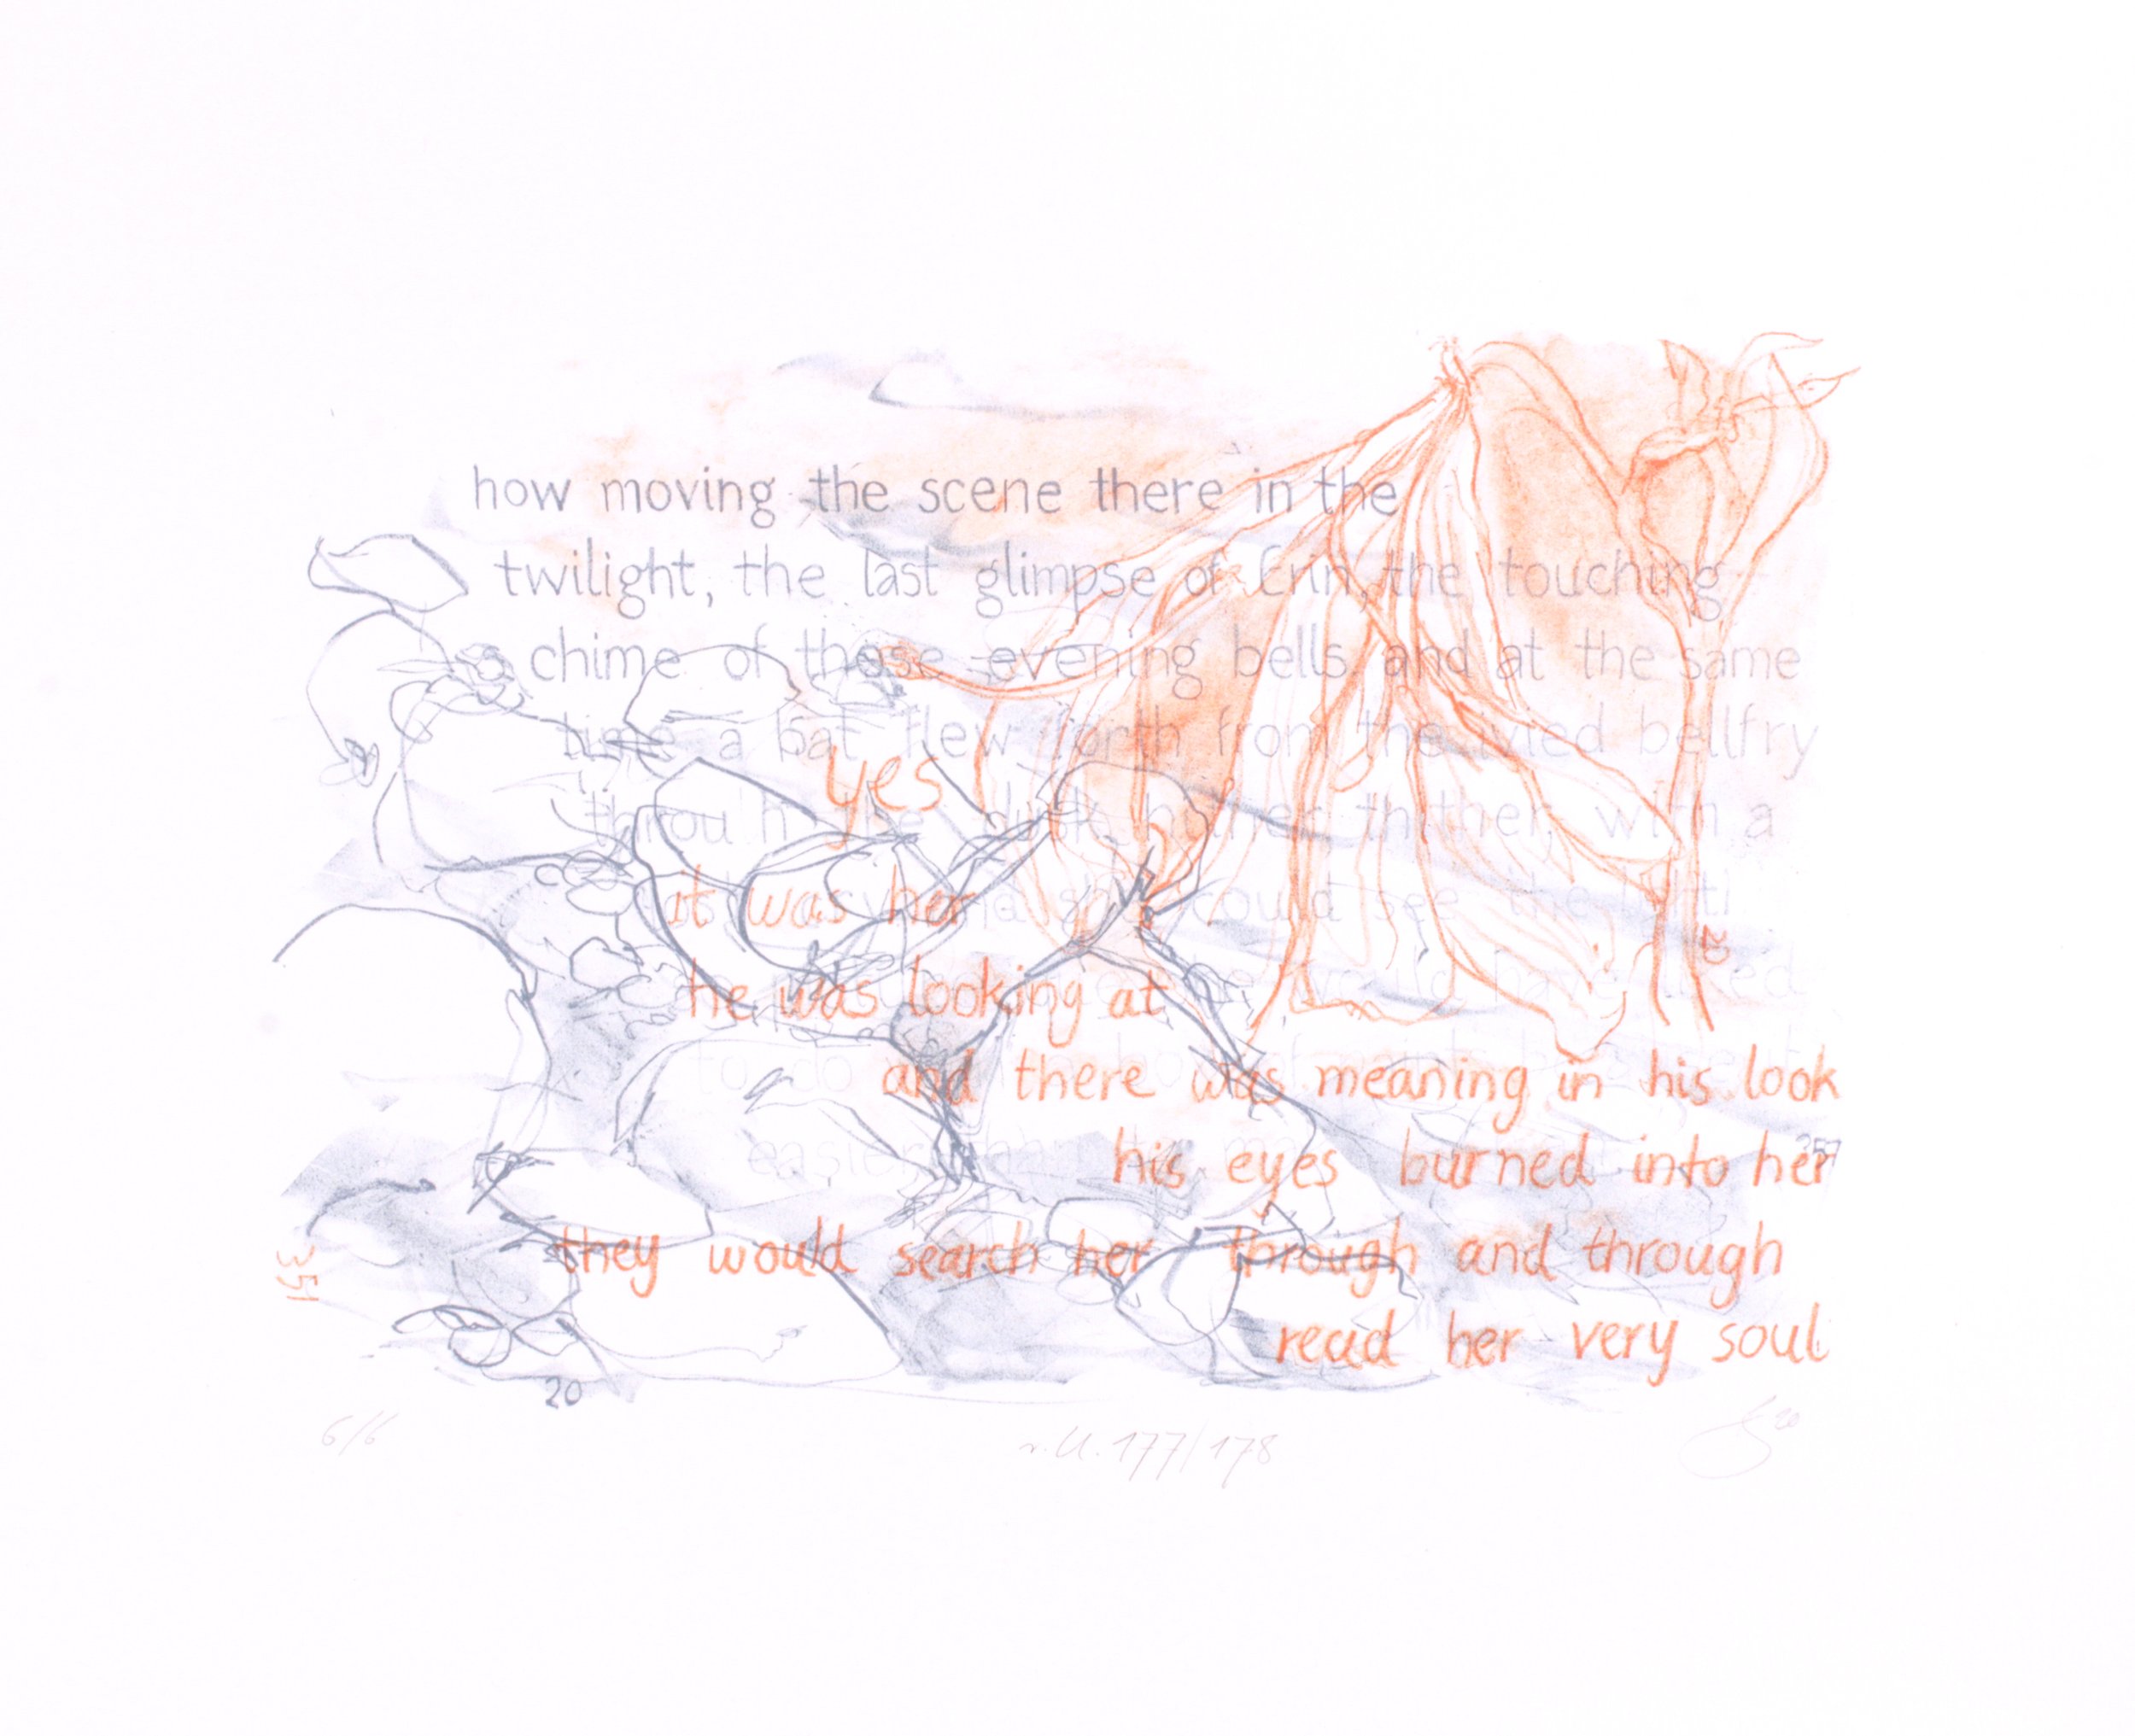 how moving the scene there in the
twilight, the last glimpse of Erin, the touching
chime of those evening bells and at the same
time a bat flew forth from the bellfry
yes
through the dusk, hither, thither, with a
could see the
it was her
he was looking at
have liked
to do
and there was meaning in his look
easier
his eyes burned into her
257
they would search her through and through
351
read her very soul
20
20
6/6
177/178
20